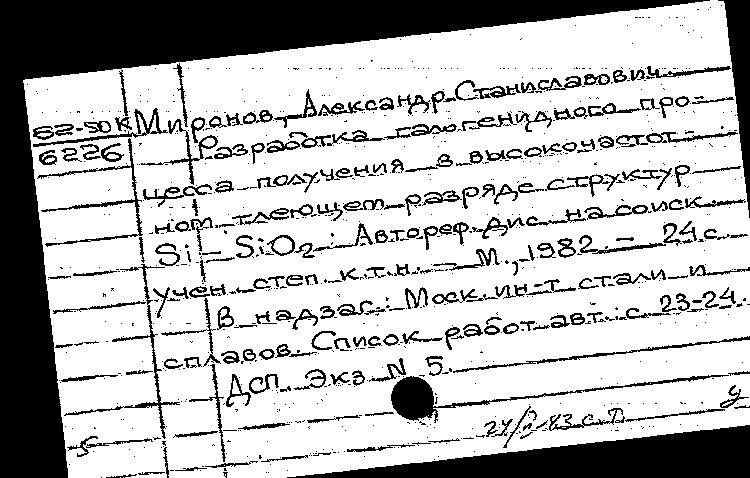 82-50К Миронов, Александр Станиславович.
6226 Разработка галогенидного про-
цесса получения в высокочастот-
ном тлеющем разряде структур
Si – SiO2: Автореф. дис. на соиск.
учен. степ. к.т.н. – М., 1982. – 24 с.
В надзаг.: Моск. ин-т стали и
сплавов. Список работ авт.: с. 23-24.
ДСП. Экз N 5.
5